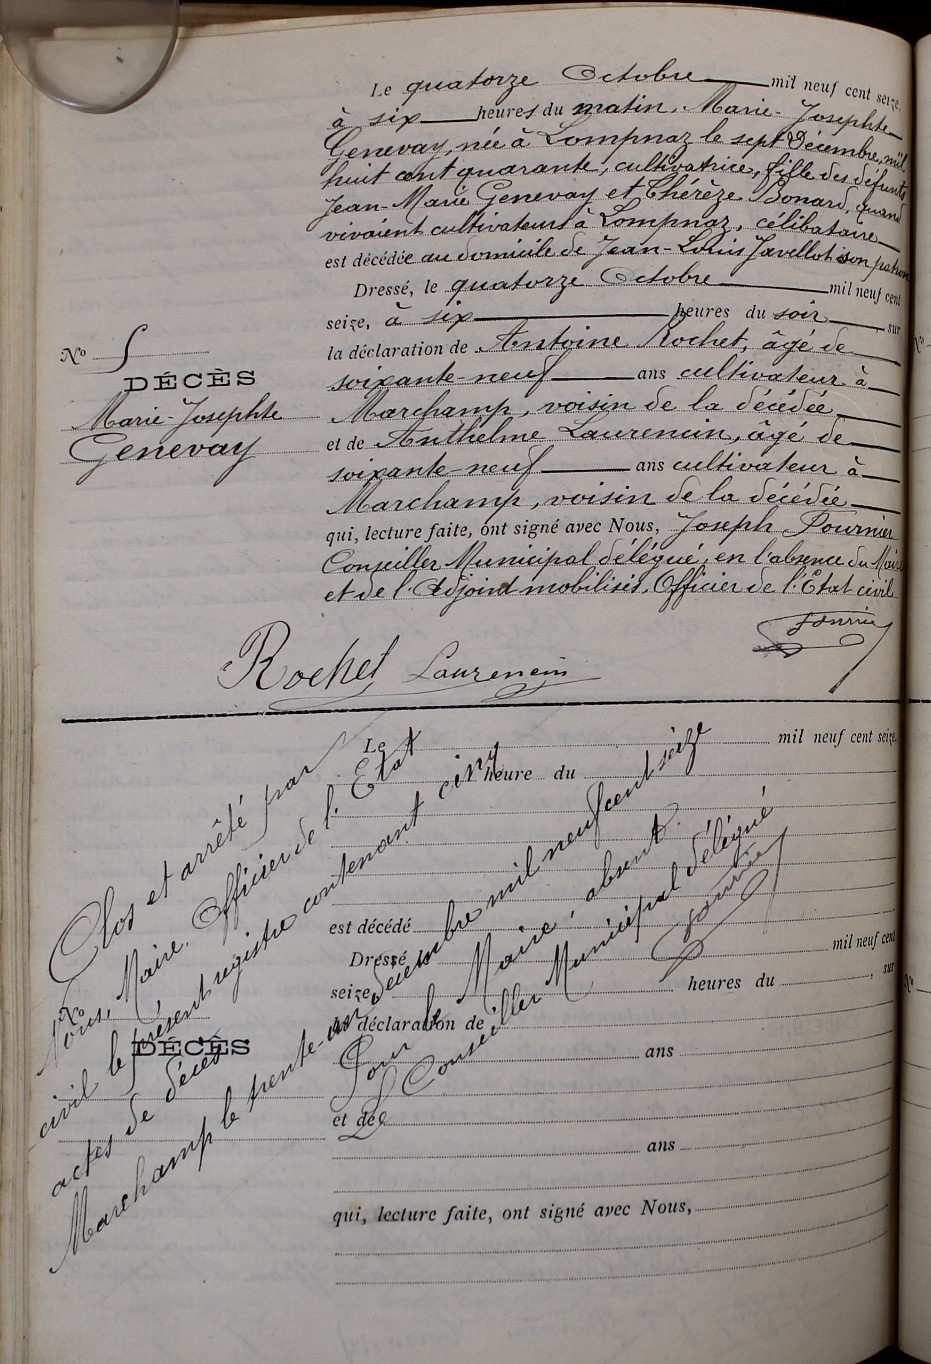 Le quatorze Octobre mil neuf cent seize,
à six heures du matin, Marie-Josephte
Genevay, née à Lompnaz le sept Décembre, mil
huit cent quarante, cultivatrice, fille des défunts
Jean-Marie Genevay et Thérèze Bonard, quand
vivaient cultivateurs à Lompnaz, célibataire
est décédée au domicile de Jean-Louis Javellot son patron
Dressé, le quatorze Octobre mil neuf cent
seize, à six heures du soir, sur
la déclaration de Antoine Rochet, âgé de
soixante-neuf ans cultivateur à
Marchamp, voisin de la décédée
et de Anthelme Laurencin, âgé de
soixante-neuf ans cultivateur à
Marchamp, voisin de la décédée
qui, lecture faite, ont signé avec Nous, Joseph Fournier
Conseiller Municipal délégué, en l'absence du Maire
et de l'Adjoint mobilisés, Officier de l'Etat civil
No 5
DÉCÈS
Marie-Josephte
Genevay
Rochet Laurencin Fournier
Le mil neuf cent seize,
heure du
est décédé
Dressé mil neuf cent
seize, heures du , sur
la déclaration de
ans
et de
ans
qui, lecture faite, ont signé avec Nous,
No
DÉCÈS
Clos et arrêté par
Nous, Maire, Officier de l'Etat
civil le présent registre contenant cinq
actes de décès
Marchamp le trente-un décembre mil neuf cent seize
Pour le Maire, absent.
Le Conseiller Municipal délégué
Fournier